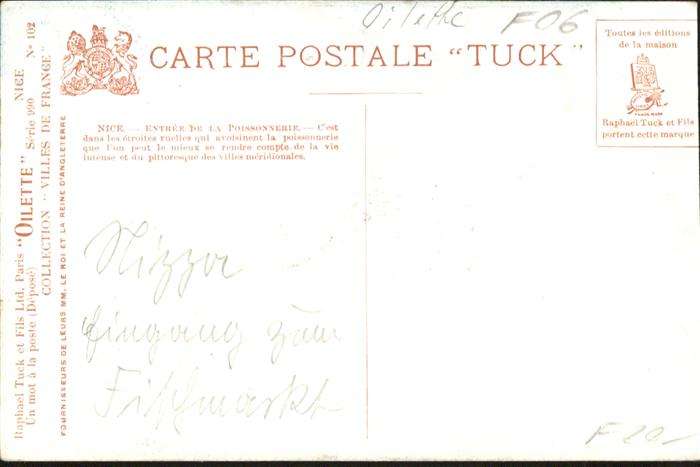 Oilette F06
CARTE POSTALE "TUCK"
Toutes les éditions
de la maison
Raphaël Tuck et Fils
portent cette marque
NICE. — ENTRÉE DE LA POISSONNERIE. — C'est
dans les étroites ruelles qui avoisinent la poissonnerie
que l'on peut le mieux se rendre compte de la vie
intense et du pittoresque des villes méridionales.
Raphaël Tuck et Fils Ltd, Paris "OILETTE" Série 990 NICE No 102
Un mot à la poste (Déposé) COLLECTION "VILLES DE FRANCE"
FOURNISSEURS DE LEURS MM. LE ROI ET LA REINE D'ANGLETERRE
Nizza
Eingang zum
Fischmarkt
F 20-